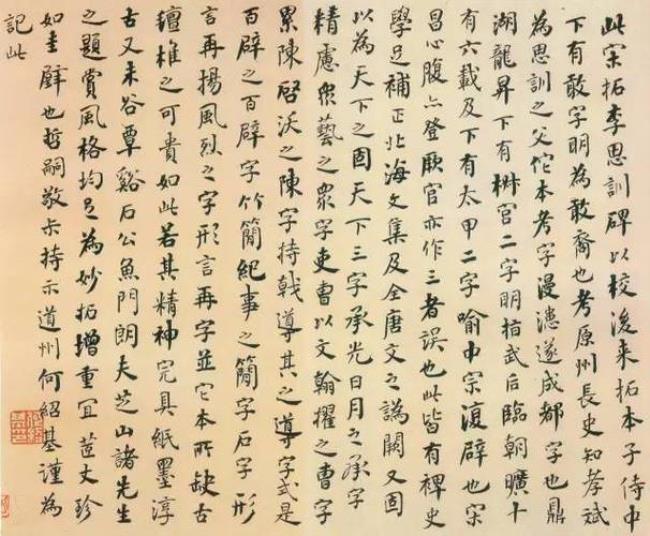 此宋拓李思訓碑以校後来拓本子侍中
下有敢字明為敢裔也考原州長史知孝斌
為思訓之父佗本考字漫漶遂成都字也鼎
湖龍昇下有棥宫二字明指武后臨朝曠十
有六載及下有太甲二字喻中宗復辟也宋
昌心腹亦登厥官亦作三者誤也此皆有裨史
學足補正北海文集及全唐文之譌闕又固
以為天下之固天下三字承光日月之承字
精慮衆藝之衆字吏曹以文翰擢之曹字
累陳啓沃之陳字持戟導其之導字式是
百辟之百辟字竹簡紀事之簡字石字形
言再揚風烈之字形言再字並它本所缺古
氊椎之可貴如此若其精神完具紙墨淳
古又未谷覃谿石公魚門朗夫芝山諸先生
之題賞風格均足為妙拓增重宜荎丈珍
如圭璧也哲嗣敬去持示道州何紹基謹為
記此